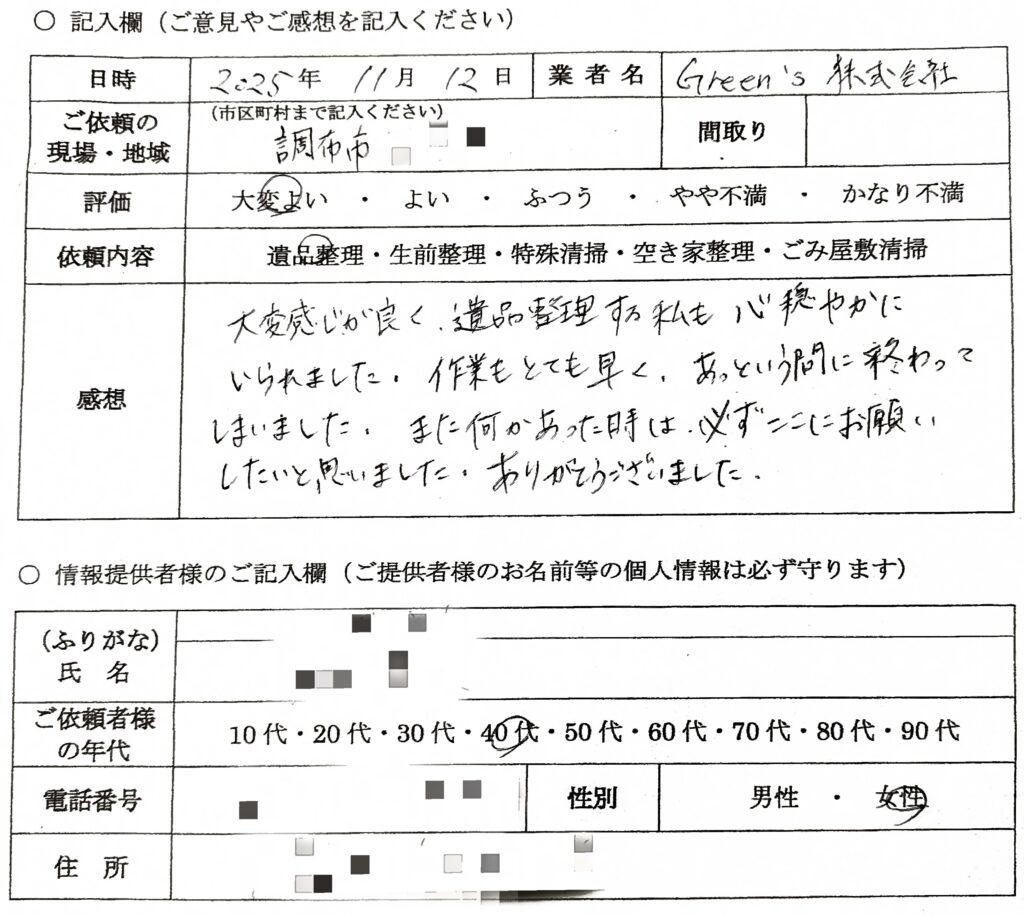 ○ 記入欄（ご意見やご感想を記入ください）
日時 2025年 11月 12日 業者名 Green's 株式会社
ご依頼の現場・地域 （市区町村まで記入ください） 調布市 間取り
評価 大変よい ・ よい ・ ふつう ・ やや不満 ・ かなり不満
依頼内容 遺品整理・生前整理・特殊清掃・空き家整理・ごみ屋敷清掃
感想
大変感じが良く、遺品整理する私も心穏やかに
いられました。作業もとても早く、あっという間に終わって
しまいました。また何かあった時は、必ずここにお願い
したいと思いました。ありがとうございました。
○ 情報提供者様のご記入欄（ご提供者様のお名前等の個人情報は必ず守ります）
（ふりがな）
氏 名
ご依頼者様の年代 10代・20代・30代・40代・50代・60代・70代・80代・90代
電話番号 性別 男性 ・ 女性
住 所